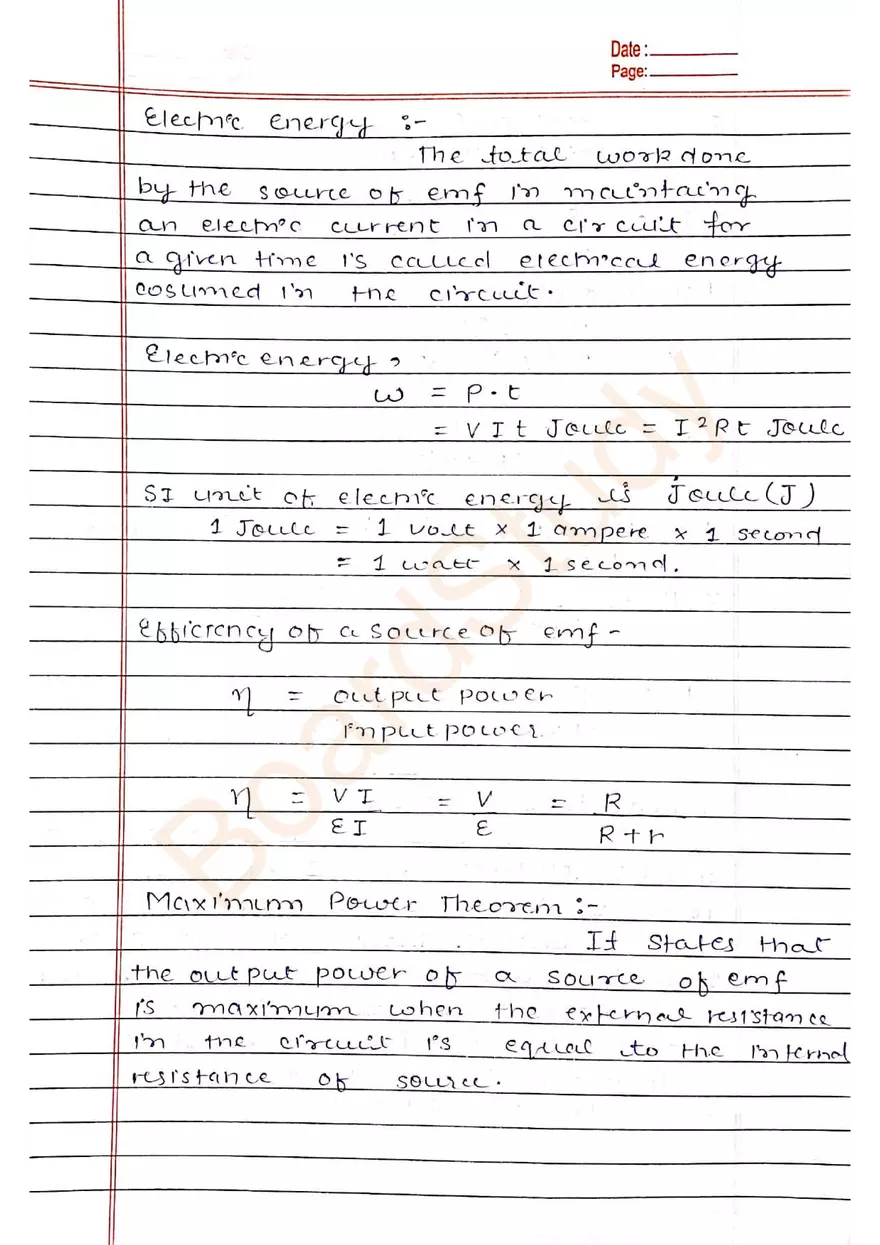 Date :
Page:
Electric energy :-
The total work done
by the source of emf in maintaing
an electric current in a circuit for
a given time is called electrical energy
cosumed in the circuit.
Electric energy,
W = P · t
= V I t Joule = I²Rt Joule
SI unit of electric energy is Joule (J)
1 Joule = 1 volt × 1 ampere × 1 second
= 1 watt × 1 second.
Efficiency of a source of emf -
η = output power
input power
η = VI = V = R
εI ε R + r
Maximum Power Theorem :-
It states that
the output power of a source of emf
is maximum when the external resistance
in the circuit is equal to the internal
resistance of source.
BoardStudy